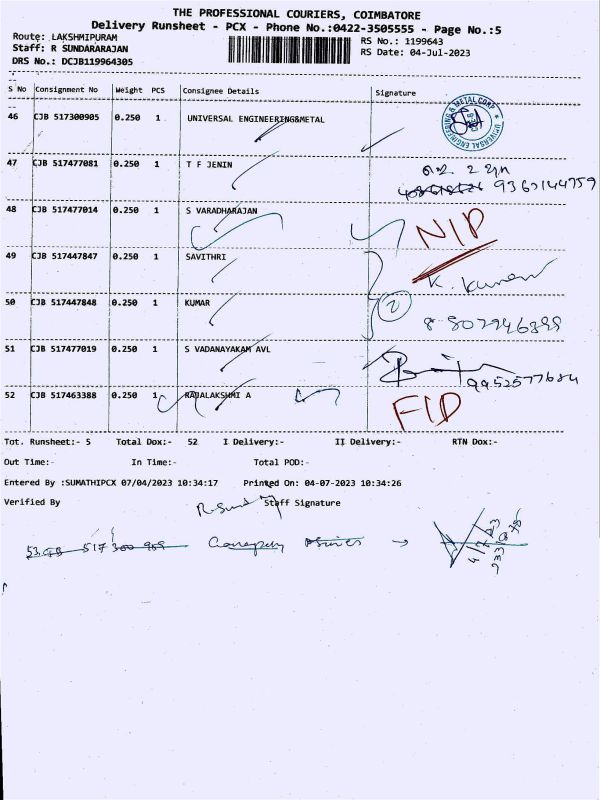 THE PROFESSIONAL COURIERS, COIMBATORE
Delivery Runsheet - PCX - Phone No.:0422-3505555 - Page No.:5
Route: LAKSHMIPURAM
RS No.: 1199643
Staff: R SUNDARARAJAN
RS Date: 04-Jul-2023
DRS No.: DCJB119964305
S No Consignment No Weight PCS Consignee Details Signature
46 CJB 517300905 0.250 1 UNIVERSAL ENGINEERING&METAL
UNIVERSAL ENGINEERING & METAL CORP
47 CJB 517477081 0.250 1 T F JENIN
9367144759
48 CJB 517477014 0.250 1 S VARADHARAJAN NIP
49 CJB 517447847 0.250 1 SAVITHRI
K. Kumar
50 CJB 517447848 0.250 1 KUMAR 2
51 CJB 517477019 0.250 1 S VADANAYAKAM AVL
9952577684
52 CJB 517463388 0.250 1 RAJALAKSHMI A FID
Tot. Runsheet:- 5 Total Dox:- 52 I Delivery:- II Delivery:- RTN Dox:-
Out Time:- In Time:- Total POD:-
Entered By :SUMATHIPCX 07/04/2023 10:34:17 Printed On: 04-07-2023 10:34:26
Verified By Staff Signature